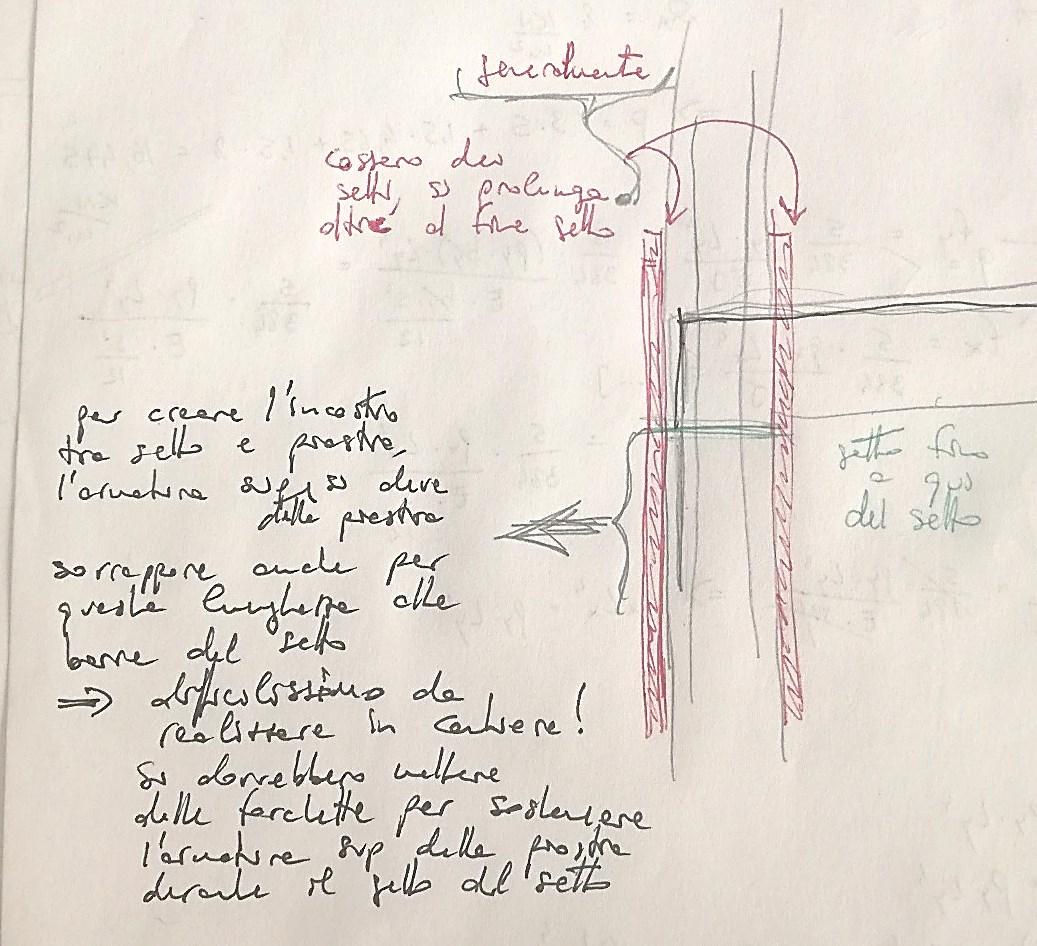 generalmente
cassero dei
setti, si prolunga
oltre al fine setto
per creare l'incastro
tra setto e piastra,
l'armatura sup si deve
della piastra
sovrappore anche per
questa lunghezza alle
barre del setto
⇒ difficilissimo da
realizzare in cantiere!
si dovrebbero mettere
delle forchette per sostenere
l'armatura sup della piastra
durante il getto del setto
getto fino
a qui
del setto